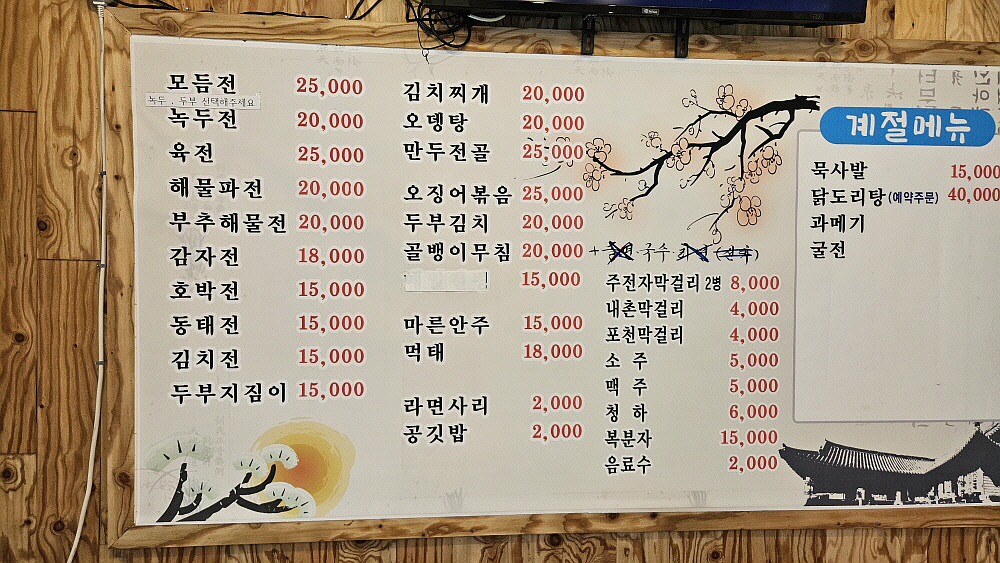 모듬전 25,000
녹두, 두부 선택해주세요
녹두전 20,000
육전 25,000
해물파전 20,000
부추해물전 20,000
감자전 18,000
호박전 15,000
동태전 15,000
김치전 15,000
두부지짐이 15,000
김치찌개 20,000
오뎅탕 20,000
만두전골 25,000
오징어볶음 25,000
두부김치 20,000
골뱅이무침 20,000 + 국수
15,000
마른안주 15,000
먹태 18,000
라면사리 2,000
공깃밥 2,000
주전자막걸리 2병 8,000
내촌막걸리 4,000
포천막걸리 4,000
소 주 5,000
맥 주 5,000
청 하 6,000
복분자 15,000
음료수 2,000
계절메뉴
묵사발 15,000
닭도리탕(예약주문) 40,000
과메기
굴전